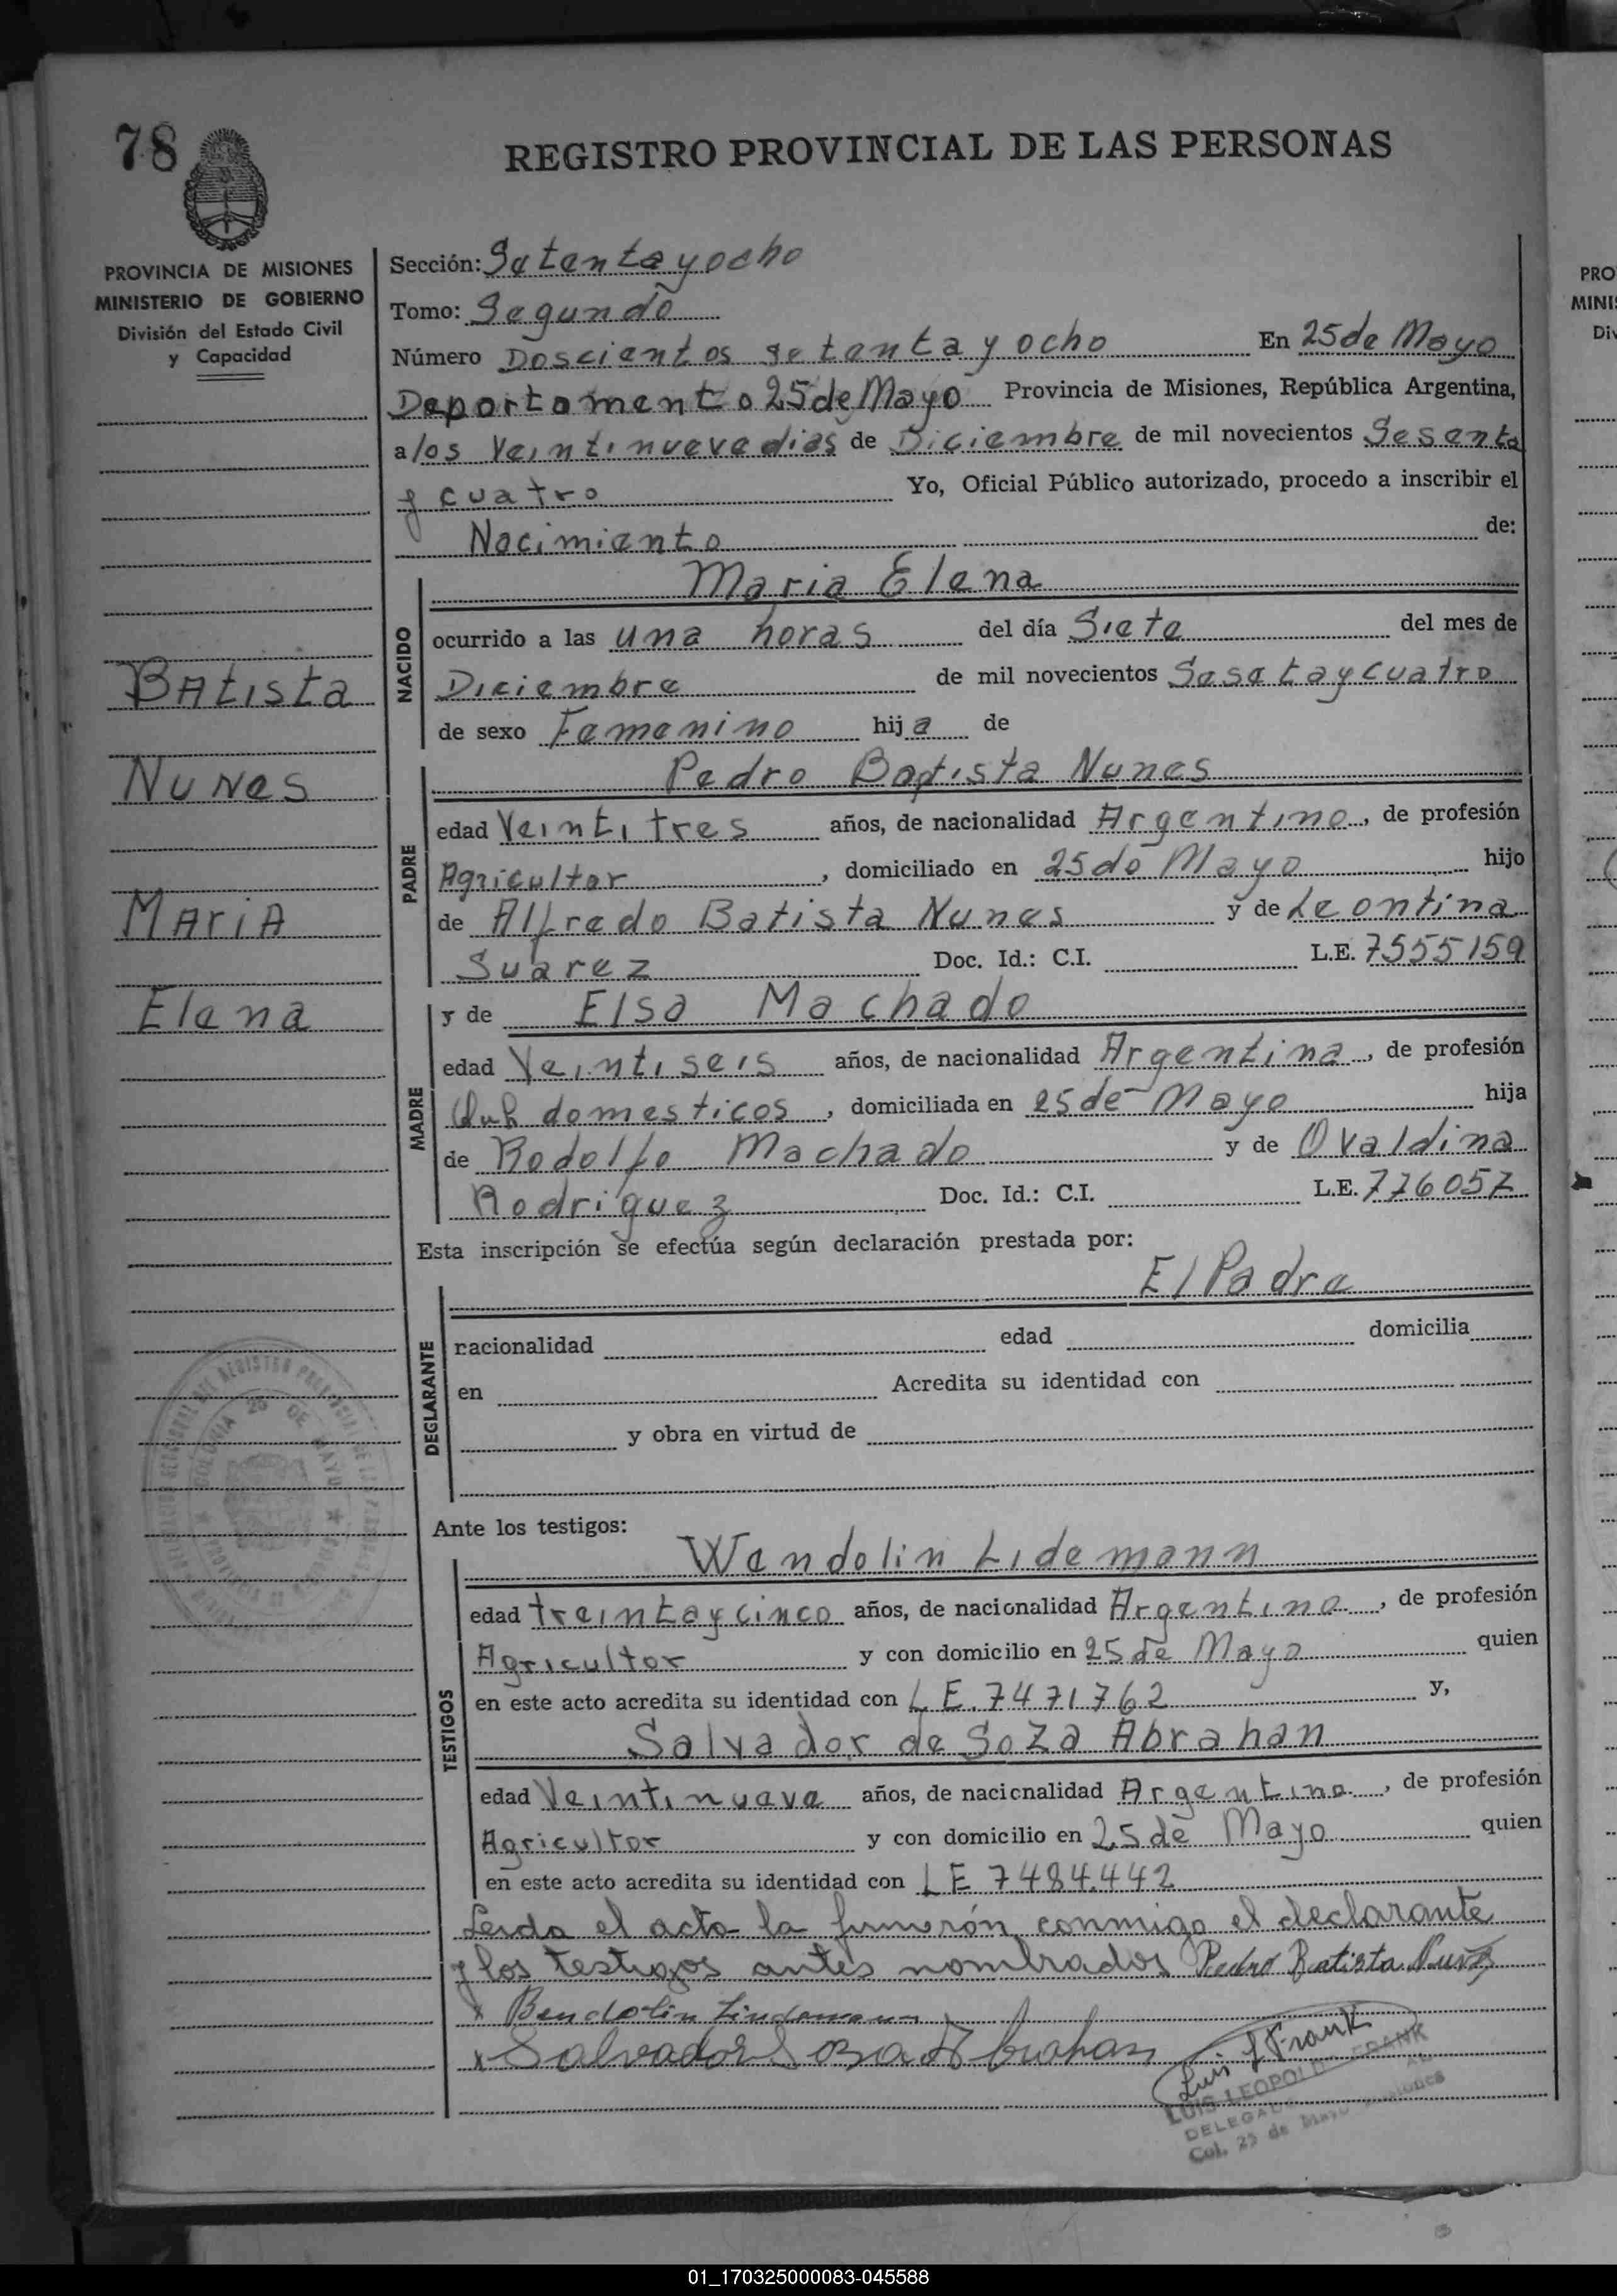 78
REGISTRO PROVINCIAL DE LAS PERSONAS
PROVINCIA DE MISIONES
MINISTERIO DE GOBIERNO
División del Estado Civil
y Capacidad
Batista
Nunes
Maria
Elena
Sección: Setenta y ocho
Tomo: Segundo
Número Doscientos setenta y ocho En 25 de Mayo
Departamento 25 de Mayo Provincia de Misiones, República Argentina,
a los Veintinueve dias de Diciembre de mil novecientos Sesenta
y cuatro Yo, Oficial Público autorizado, procedo a inscribir el
Nacimiento de:
NACIDO
Maria Elena
ocurrido a las una horas del día Siete del mes de
Diciembre de mil novecientos Sesetaycuatro
de sexo Femenino hija de
PADRE
Pedro Baptista Nunes
edad Veintitres años, de nacionalidad Argentino, de profesión
Agricultor, domiciliado en 25 de Mayo hijo
de Alfredo Batista Nunes y de Leontina
Suarez Doc. Id.: C.I. L.E. 7555159
MADRE
y de Elsa Machado
edad Veintiseis años, de nacionalidad Argentina, de profesión
Queh domesticos, domiciliada en 25 de Mayo hija
de Rodolfo Machado y de Ovaldina
Rodriguez Doc. Id.: C.I. L.E. 776057
Esta inscripción se efectúa según declaración prestada por:
DECLARANTE
El Padre
nacionalidad edad domicilia
en Acredita su identidad con
y obra en virtud de
Ante los testigos:
TESTIGOS
Wendolin Lidemann
edad treintaycinco años, de nacionalidad Argentino, de profesión
Agricultor y con domicilio en 25 de Mayo quien
en este acto acredita su identidad con L E. 7471762 y,
Salvador de Soza Abrahan
edad Veintinueve años, de nacionalidad Argentino, de profesión
Agricultor y con domicilio en 25 de Mayo quien
en este acto acredita su identidad con L E 7484.442
Leida el acta la firmarón conmigo el declarante
y los testigos antes nombrados Pedro Batista Nunes
x Bendolin Lindemann
x Salvador Soza Abrahan
Luis L Frank
LUIS LEOPOLDO FRANK
DELEGADO
Col. 25 de Mayo Misiones
PRO
MINI
Div
01_170325000083-045588